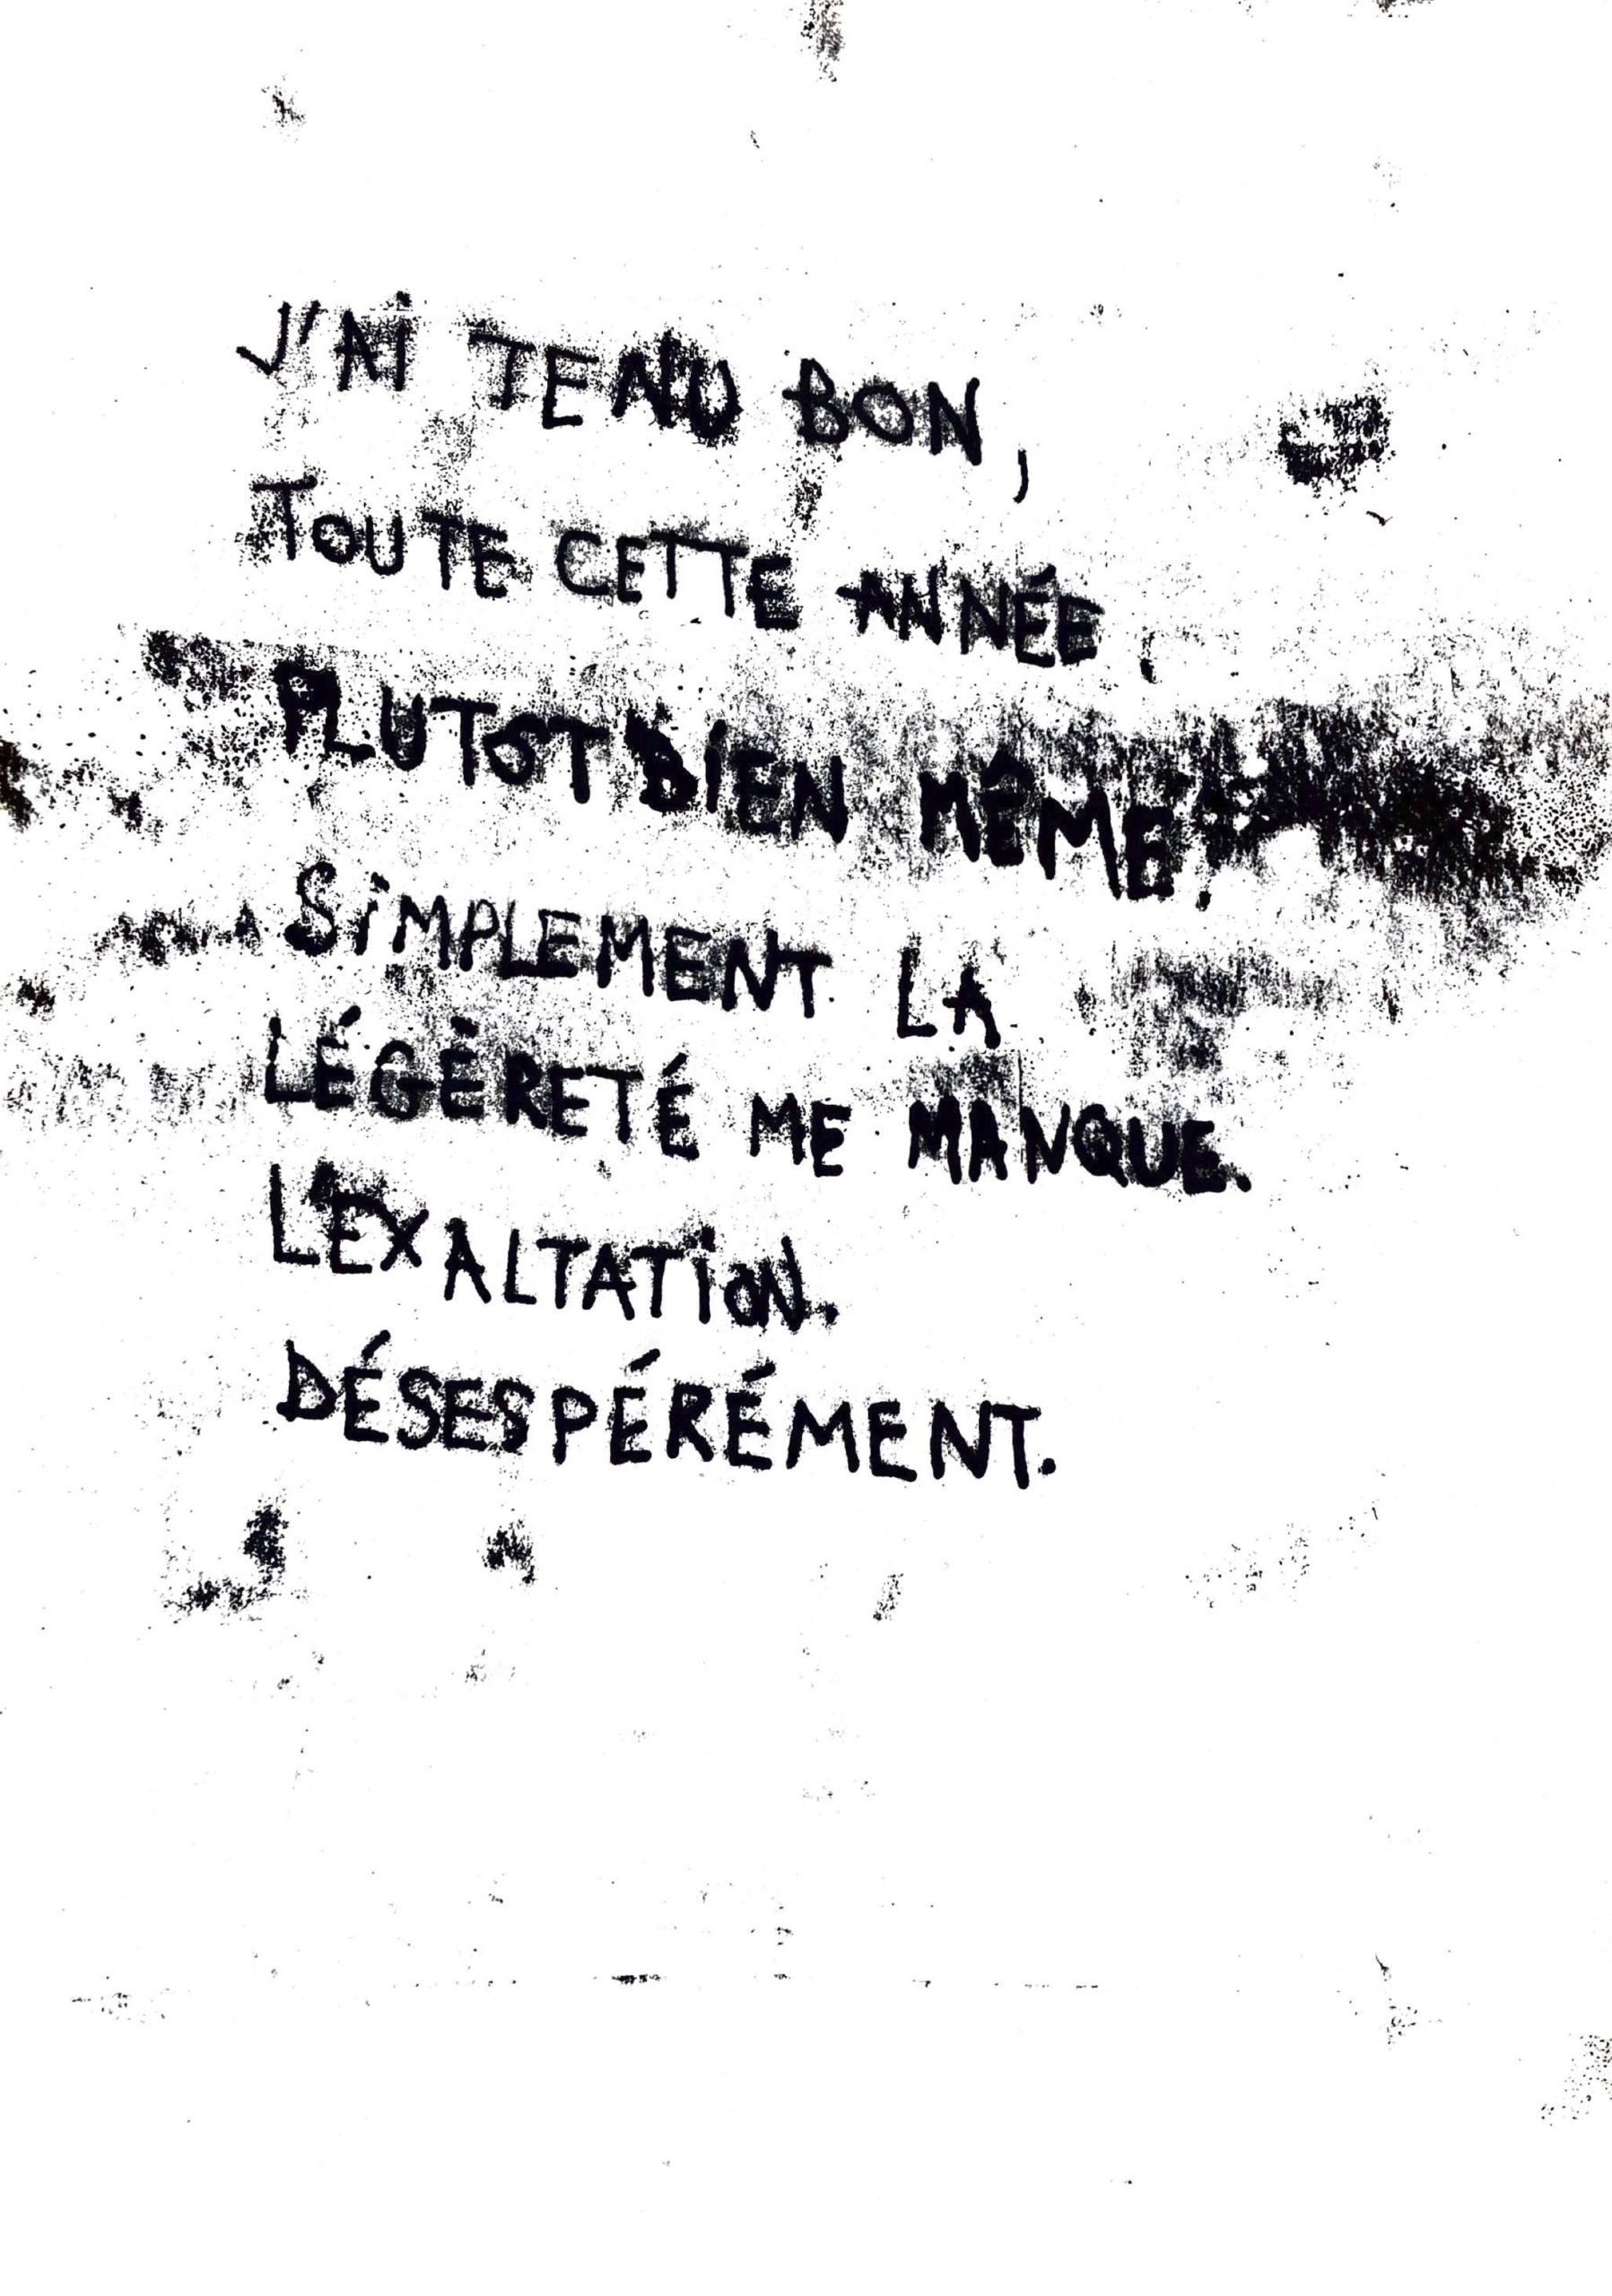 J'Ai TENU BON,
TOUTE CETTE ANNÉE,
PLUTOT BiEN MÊME,
SiMPLEMENT LA
LÉGÈRETÉ ME MANQUE.
L'EXALTATiON.
DÉSESPÉRÉMENT.